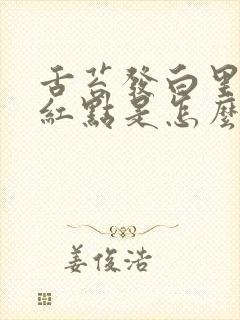 舌苔發白里
紅點是怎麼
姜俊浩